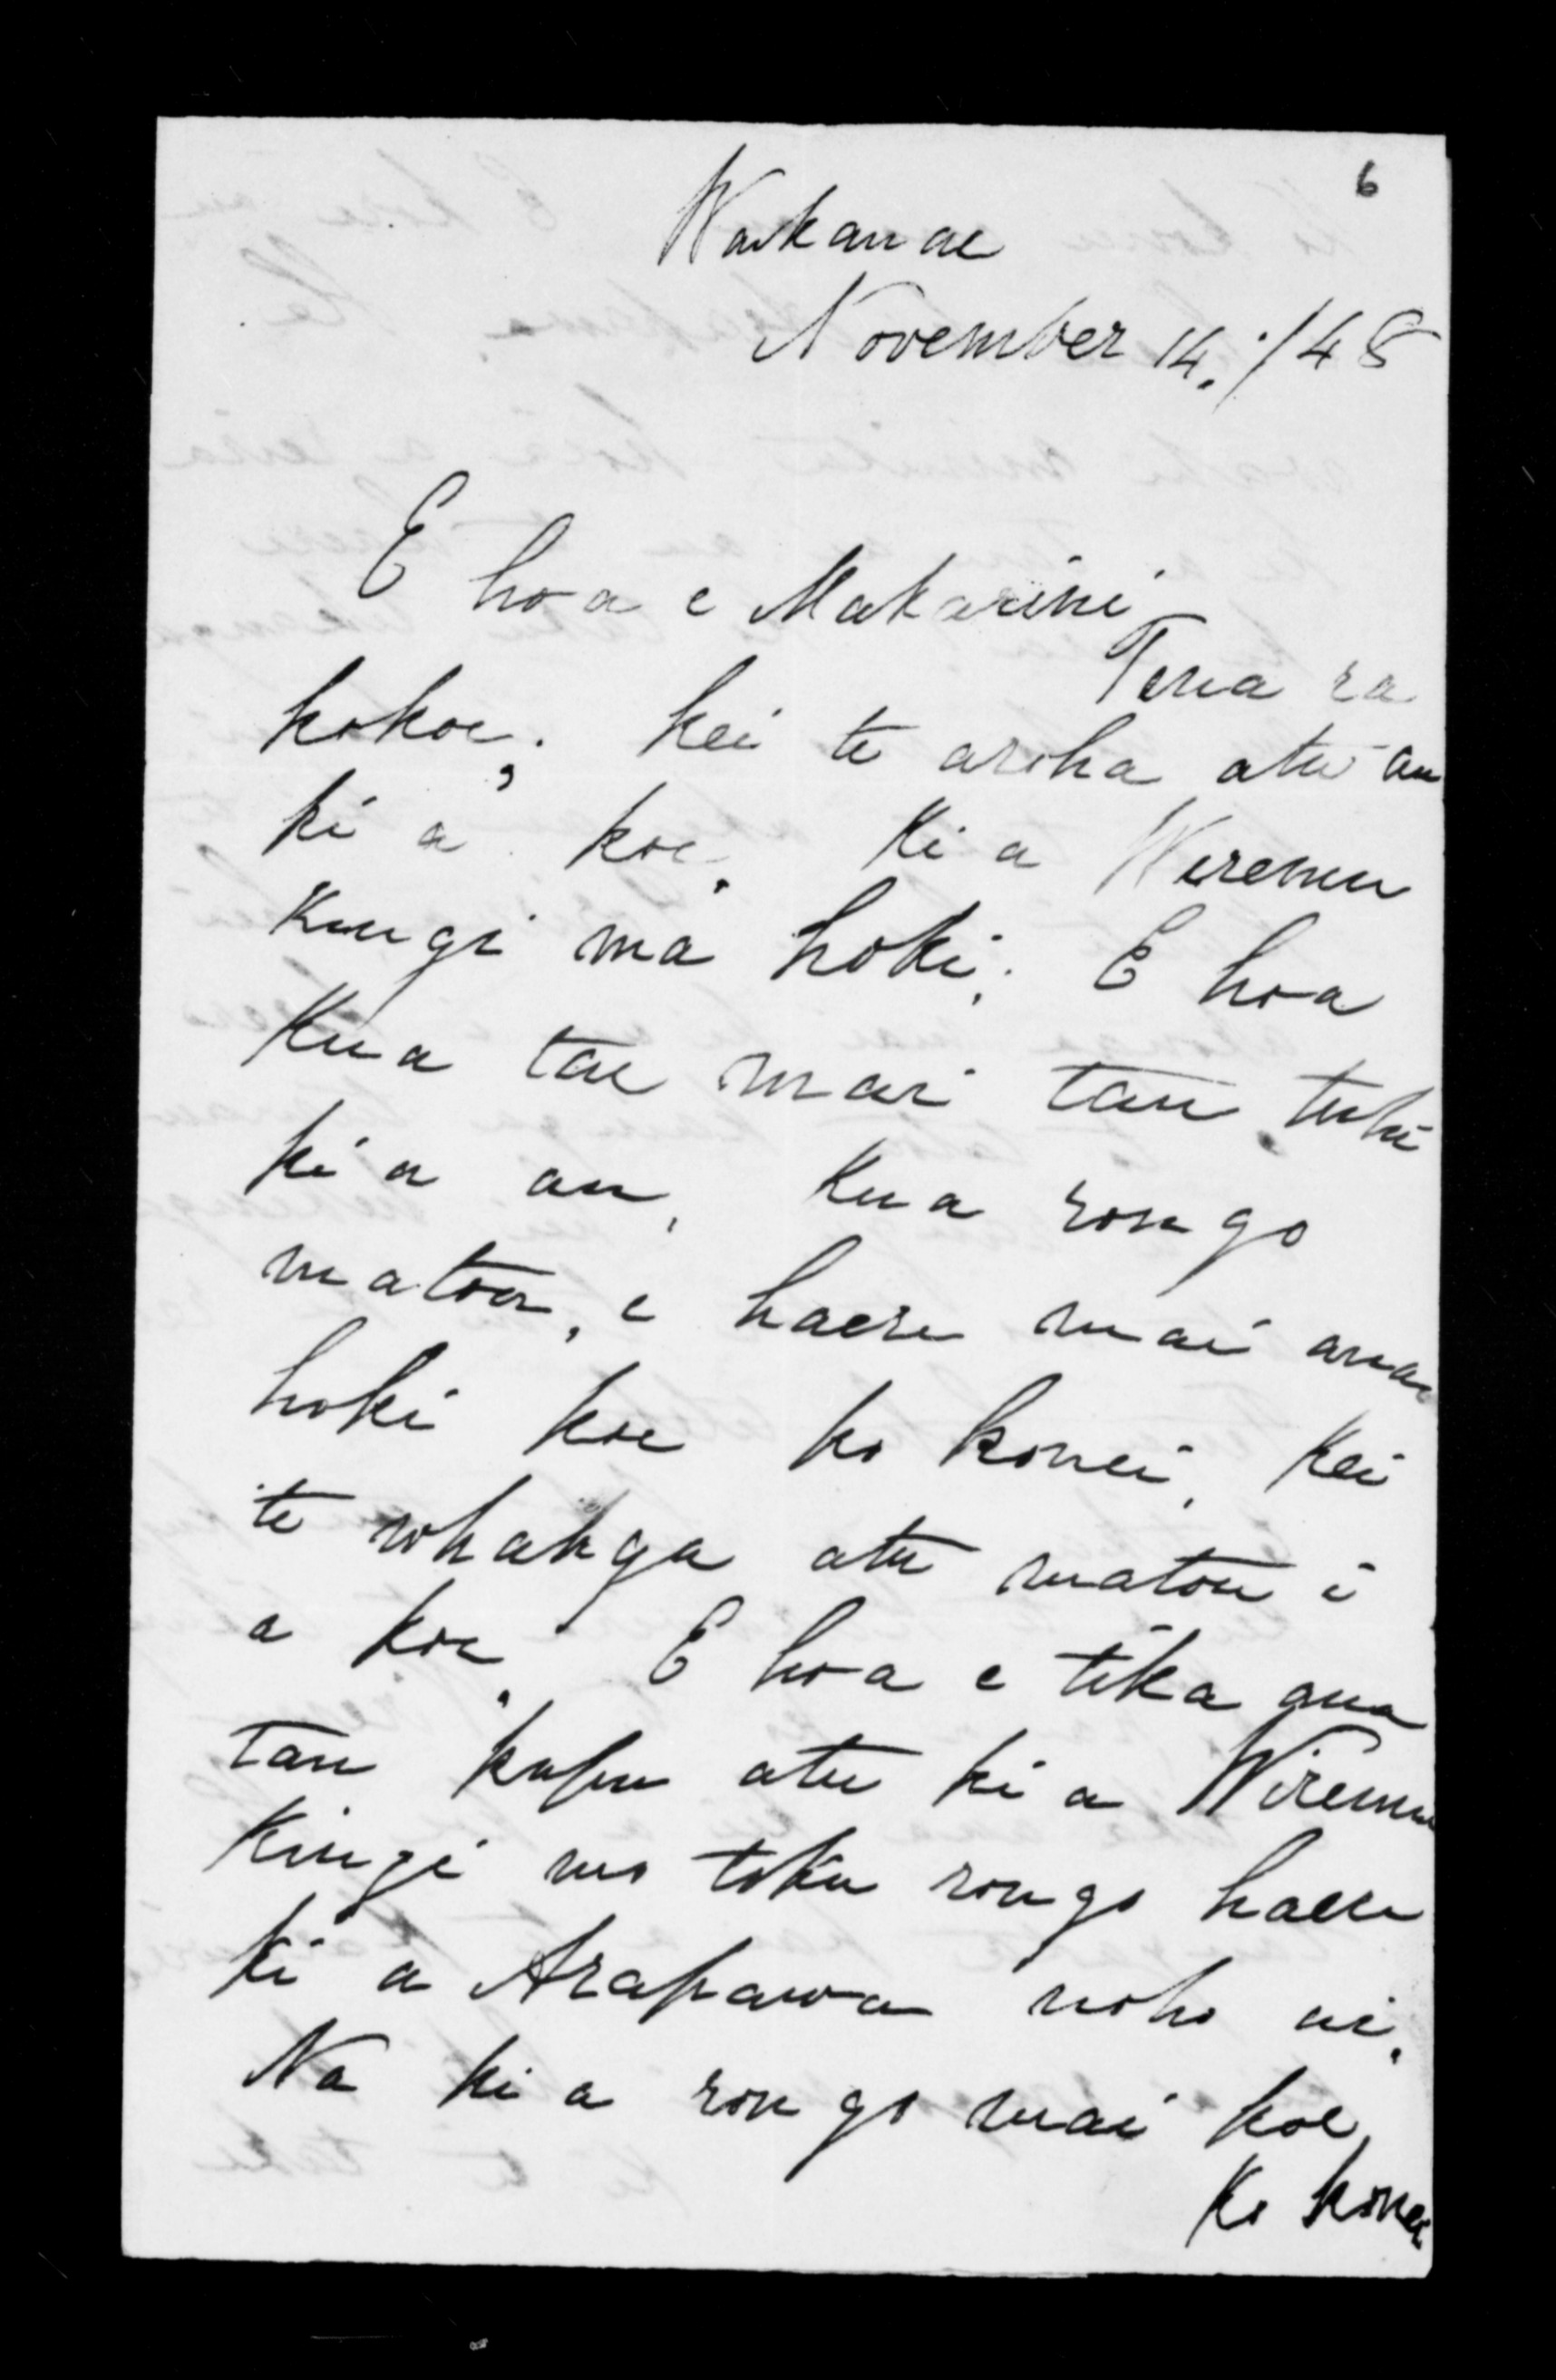 6
Waikanae
November 14./48
E hoa e Makarini
Tena ra
kokoe, kei te aroha atu au
ki a koe, ki a Wiremu
Kingi ma hoki. E hoa
Kua tae mai tau tuhi
ki a au, Kua rongo
matou, e haere mai ana
hoki koe ko konei, Kei
te whanga atu matou i
a koe, E hoa e tika ana
tau kupu atu ki a Wiremu
Kingi mo toku rongo haere
ki a Arapawa noho ai,
Na ki a rongo mai koe,
Ko konei